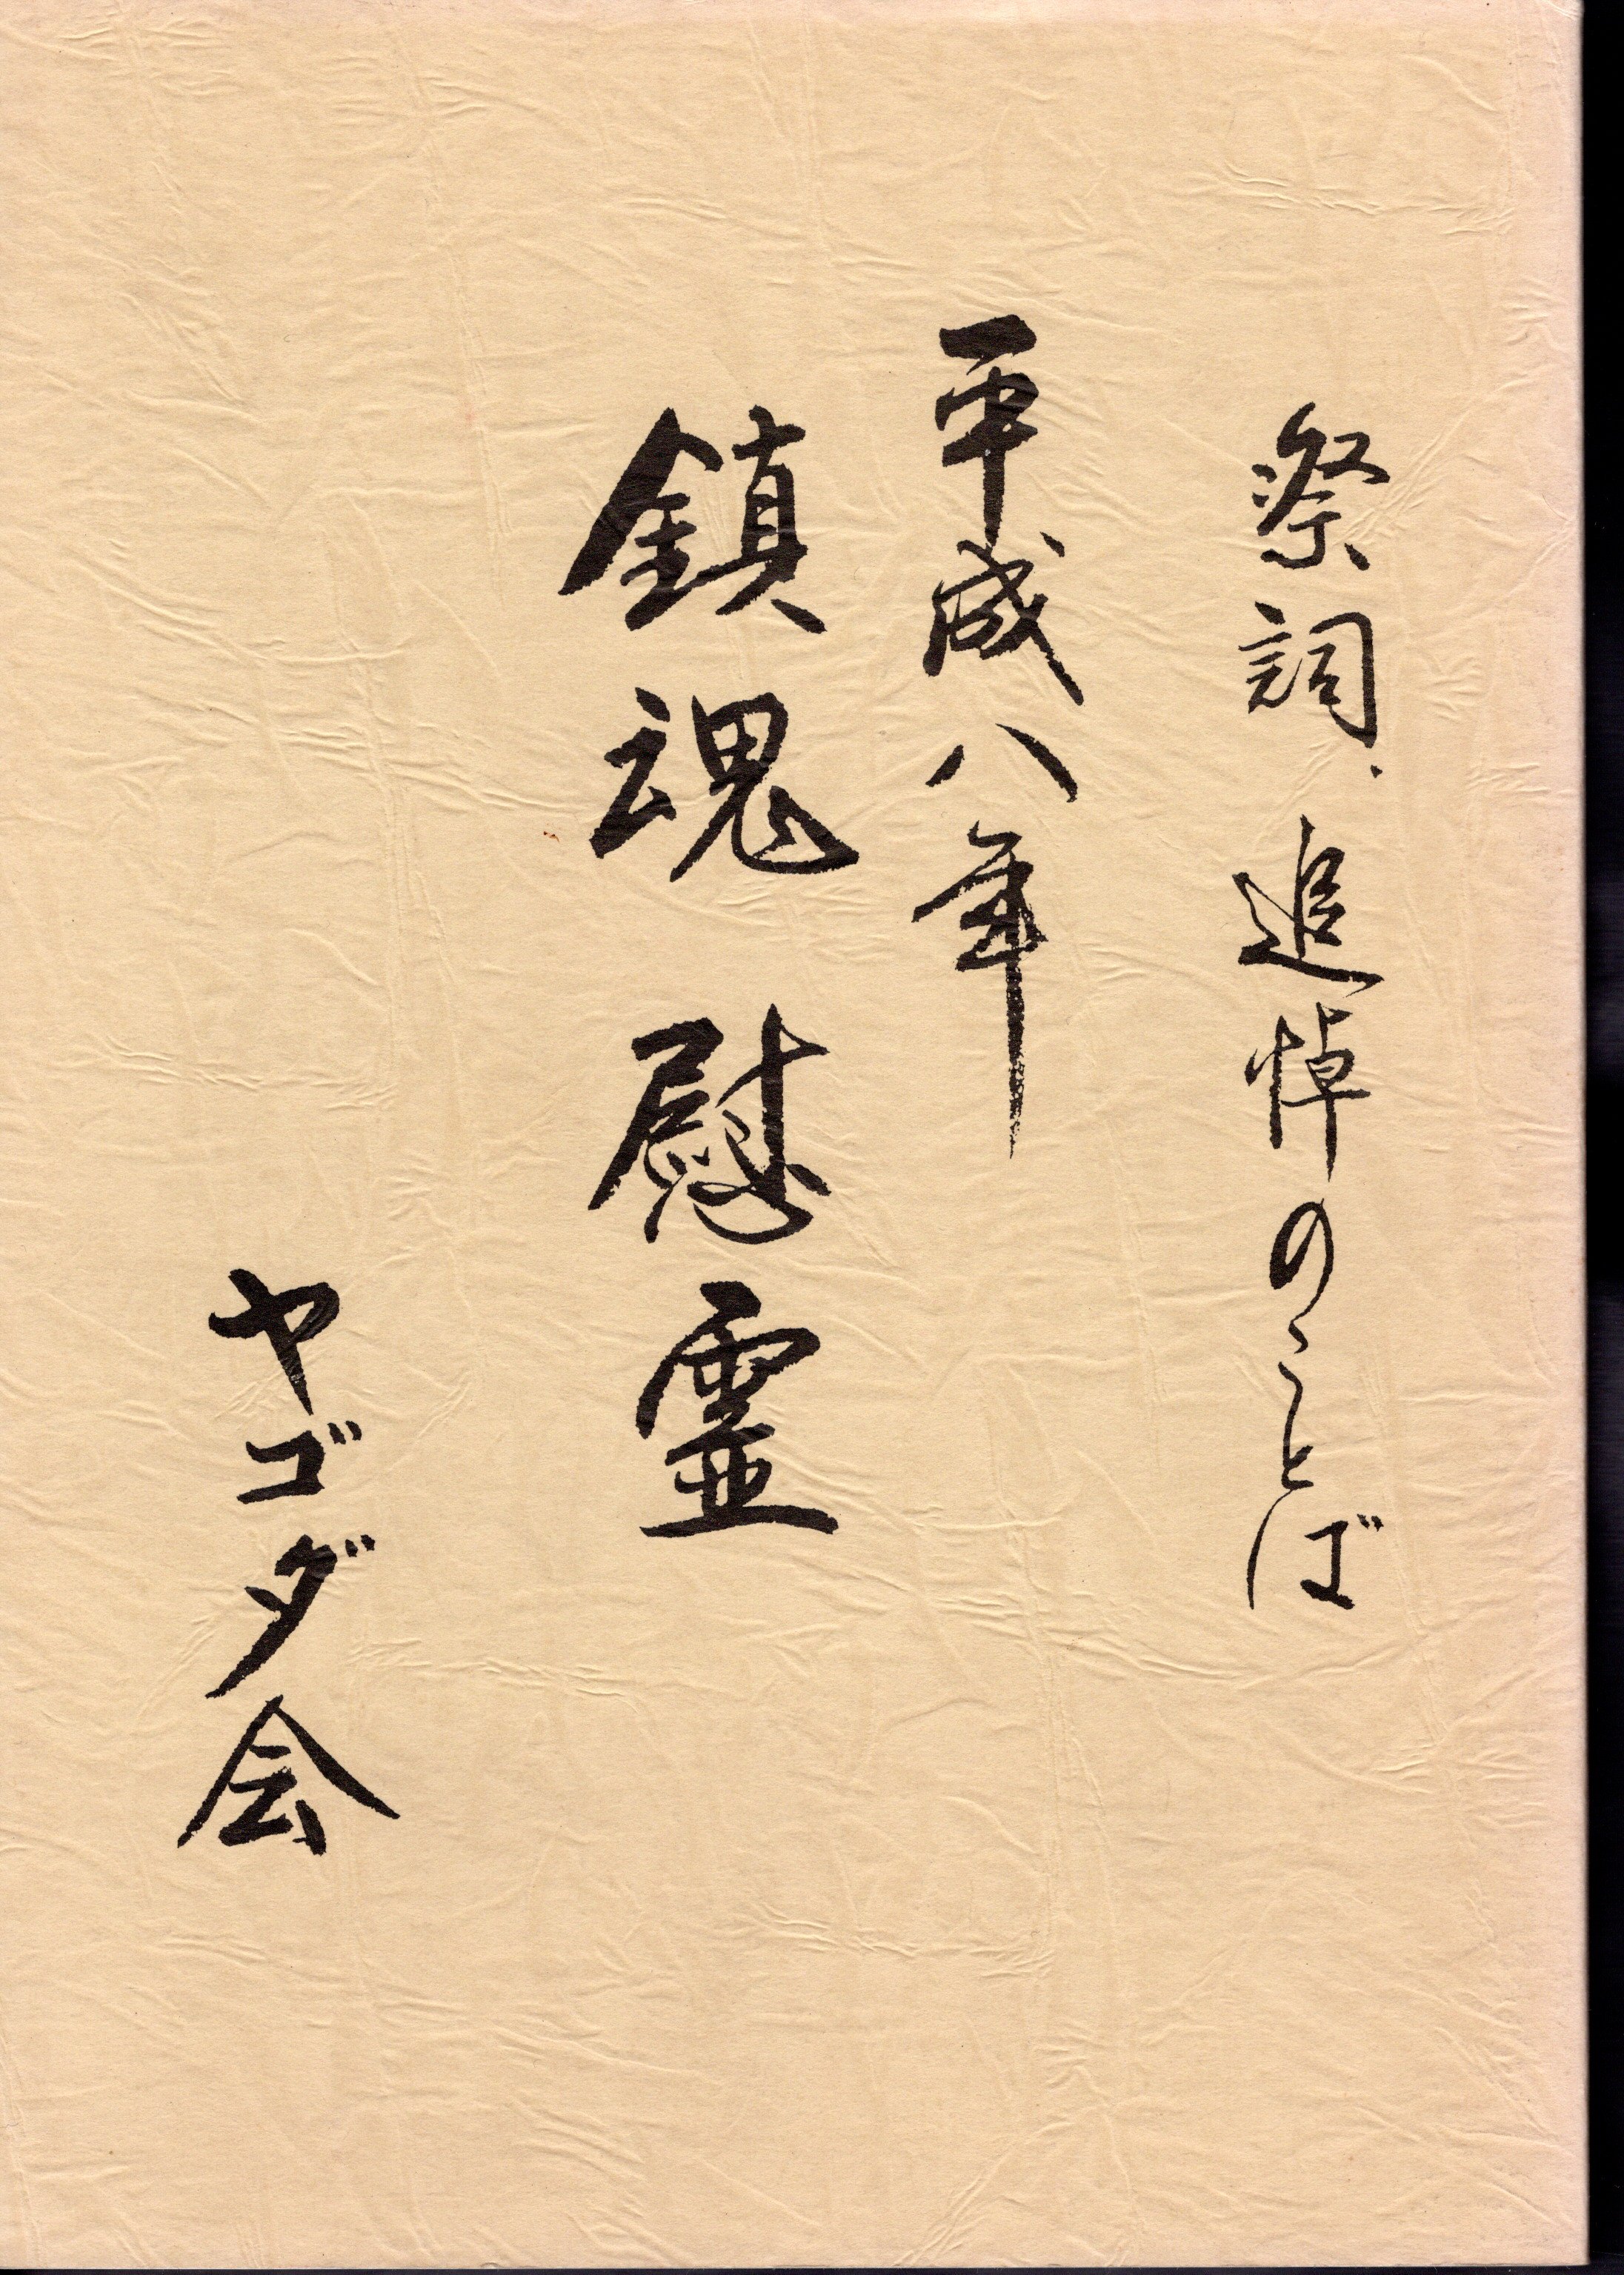 祭詞、追悼のことば
平成八年
鎮魂慰霊
ヤゴダ会